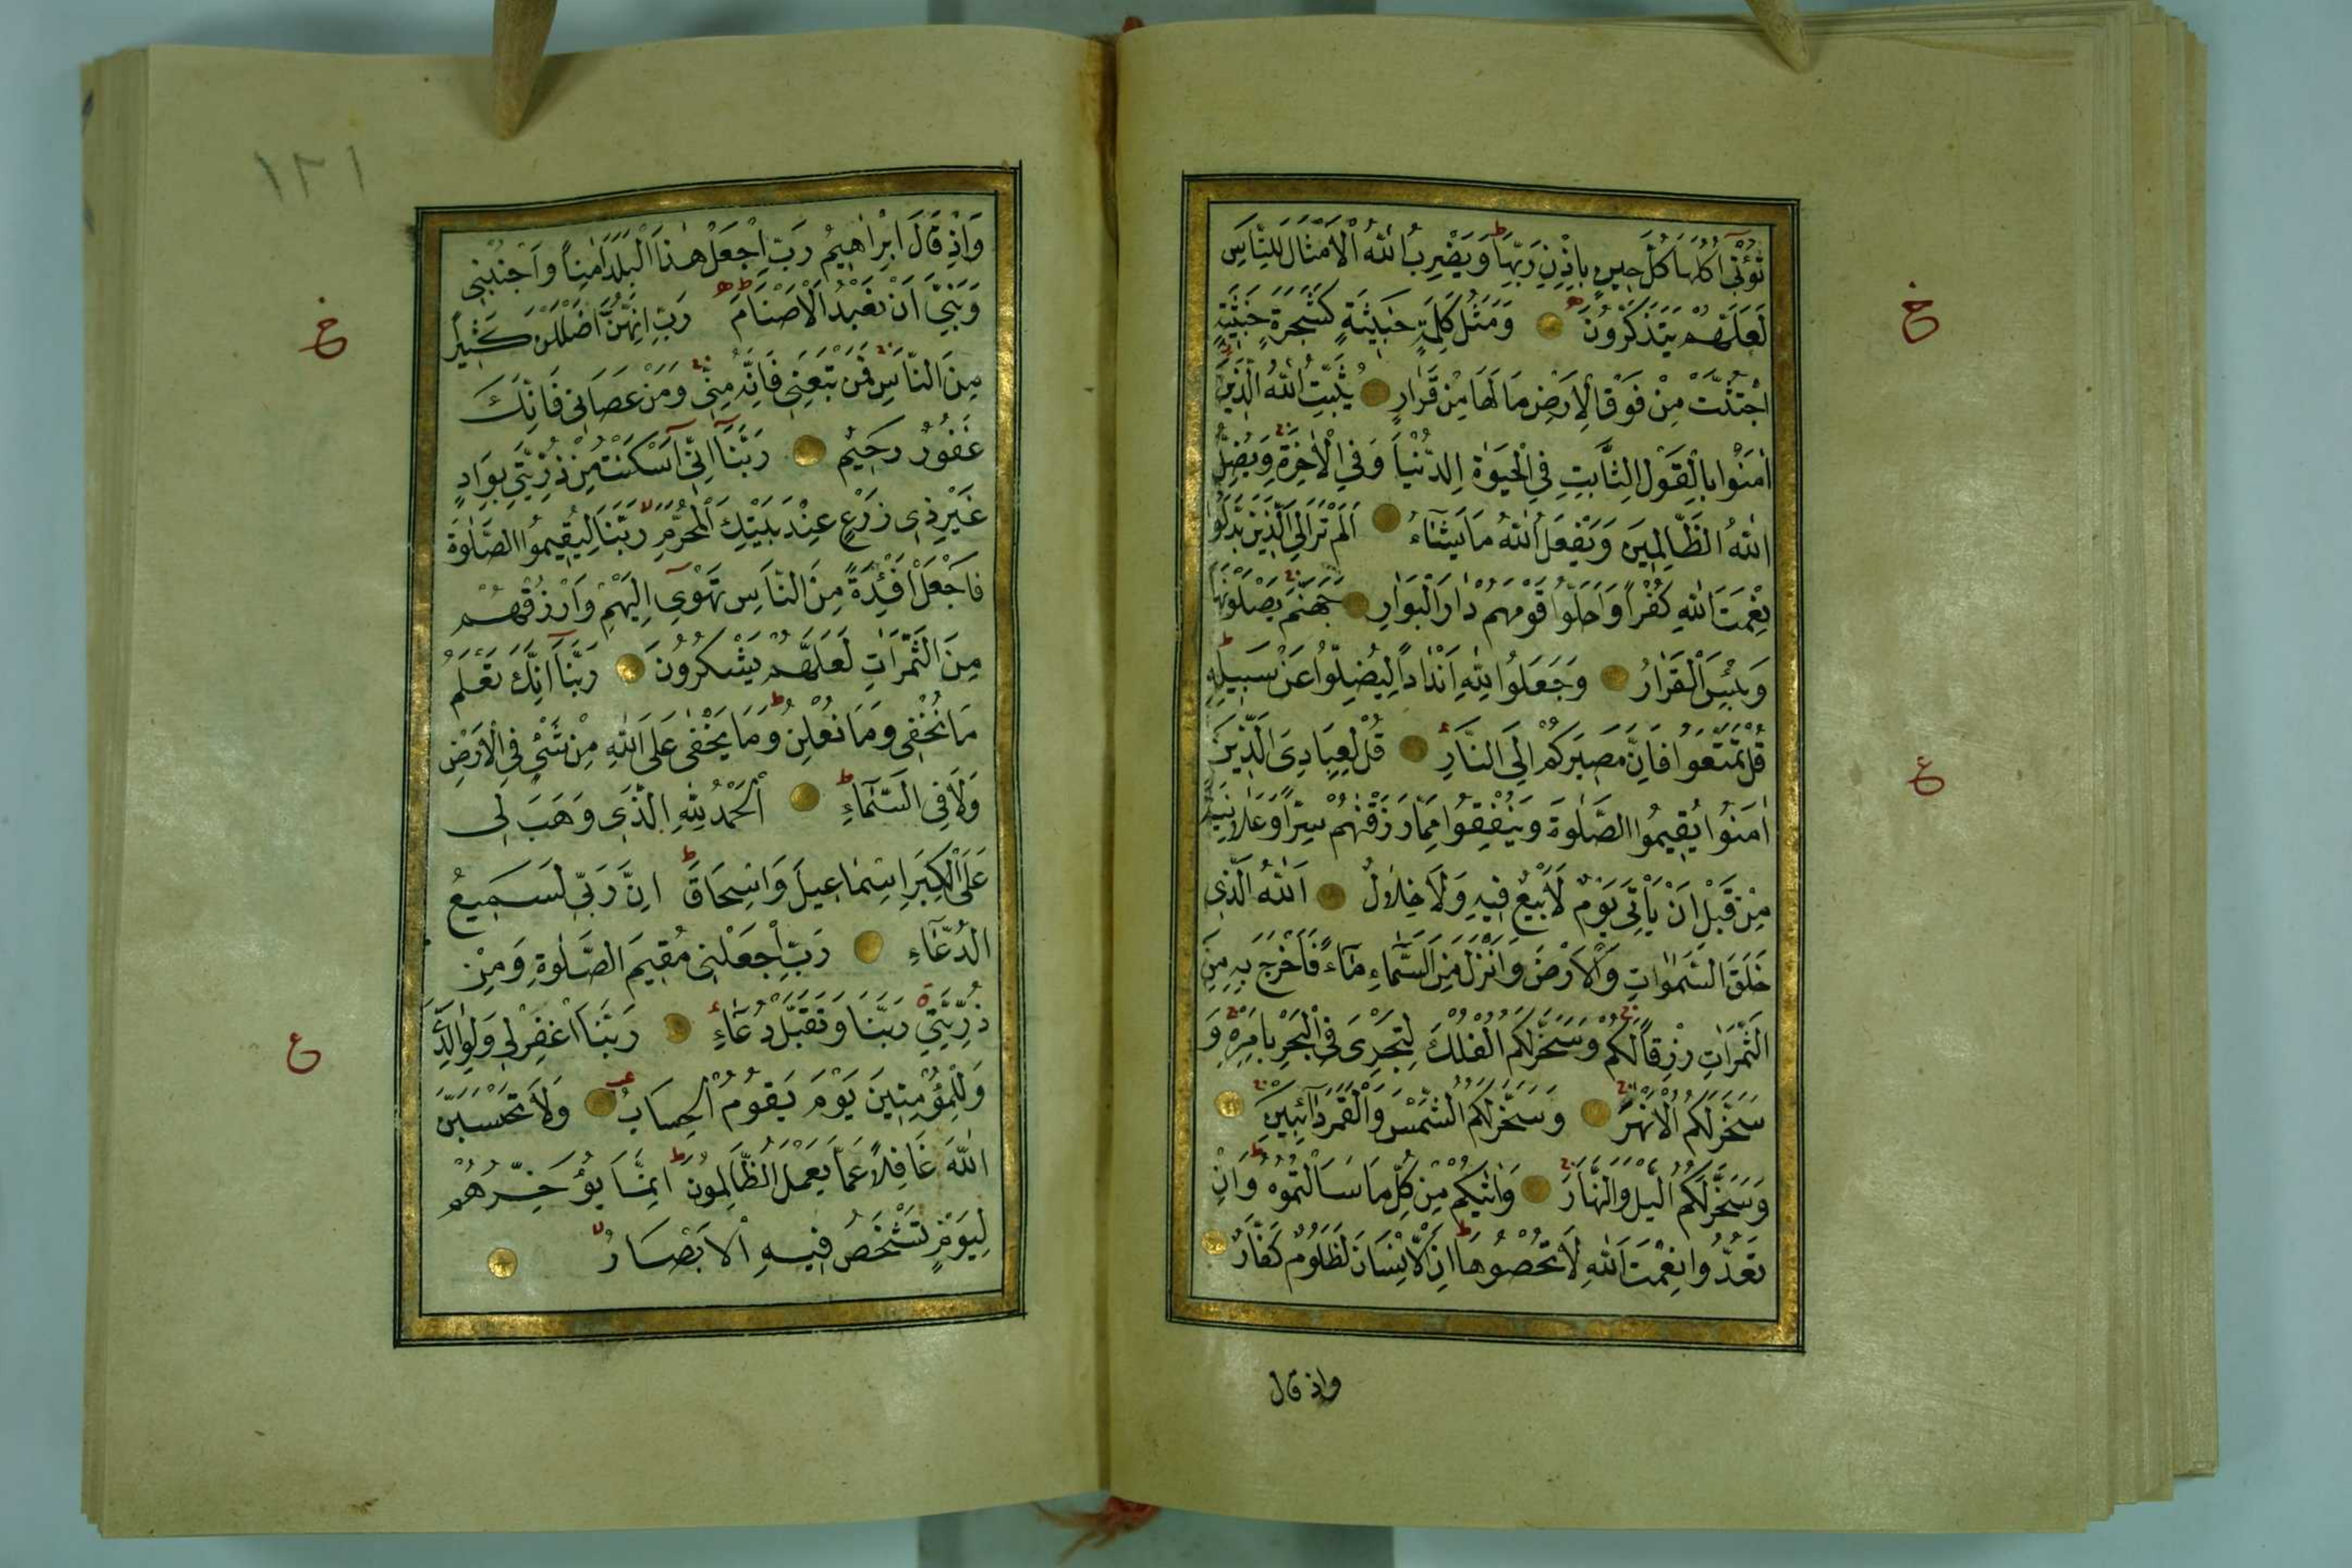 تُؤْتِي اُكُلَهَا كُلَّ حِينٍ بِاِذْنِ رَبِّهَا ط وَيَضْرِبُ اللّٰهُ الْاَمْثَالَ لِلنَّاسِ
لَعَلَّهُمْ يَتَذَكَّرُونَ وَمَثَلُ كَلِمَةٍ خَبِيثَةٍ كَشَجَرَةٍ خَبِيثَةٍ
اجْتُثَّتْ مِنْ فَوْقِ الْاَرْضِ مَا لَهَا مِنْ قَرَارٍ يُثَبِّتُ اللّٰهُ الَّذِينَ
اٰمَنُوا بِالْقَوْلِ الثَّابِتِ فِي الْحَيٰوةِ الدُّنْيَا وَفِي الْاٰخِرَةِ وَيُضِلُّ
اللّٰهُ الظَّالِمِينَ وَيَفْعَلُ اللّٰهُ مَا يَشَاءُ اَلَمْ تَرَ اِلَى الَّذِينَ بَدَّلُوا
نِعْمَتَ اللّٰهِ كُفْرًا وَاَحَلُّوا قَوْمَهُمْ دَارَ الْبَوَارِ جَهَنَّمَ يَصْلَوْنَهَا
وَبِئْسَ الْقَرَارُ وَجَعَلُوا لِلّٰهِ اَنْدَادًا لِيُضِلُّوا عَنْ سَبِيلِهِ ط
قُلْ تَمَتَّعُوا فَاِنَّ مَصِيرَكُمْ اِلَى النَّارِ قُلْ لِعِبَادِيَ الَّذِينَ
اٰمَنُوا يُقِيمُوا الصَّلٰوةَ وَيُنْفِقُوا مِمَّا رَزَقْنٰهُمْ سِرًّا وَعَلَانِيَةً
مِنْ قَبْلِ اَنْ يَأْتِيَ يَوْمٌ لَا بَيْعٌ فِيهِ وَلَا خِلَالٌ اَللّٰهُ الَّذِي
خَلَقَ السَّمٰوَاتِ وَالْاَرْضَ وَاَنْزَلَ مِنَ السَّمَاءِ مَاءً فَاَخْرَجَ بِهِ مِنَ
الثَّمَرَاتِ رِزْقًا لَكُمْ وَسَخَّرَ لَكُمُ الْفُلْكَ لِتَجْرِيَ فِي الْبَحْرِ بِاَمْرِهِ وَ
سَخَّرَ لَكُمُ الْاَنْهٰرَ وَسَخَّرَ لَكُمُ الشَّمْسَ وَالْقَمَرَ دَائِبَيْنِ
وَسَخَّرَ لَكُمُ الَّيْلَ وَالنَّهَارَ وَاٰتٰيكُمْ مِنْ كُلِّ مَا سَاَلْتُمُوهُ ط وَاِنْ
تَعُدُّوا نِعْمَتَ اللّٰهِ لَا تُحْصُوهَا ط اِنَّ الْاِنْسَانَ لَظَلُومٌ كَفَّارٌ
واذ قال
خ
ع
١٢١
وَاِذْ قَالَ اِبْرَاهِيمُ رَبِّ اجْعَلْ هٰذَا الْبَلَدَ اٰمِنًا وَاجْنُبْنِي
وَبَنِيَّ اَنْ نَعْبُدَ الْاَصْنَامَ ط رَبِّ اِنَّهُنَّ اَضْلَلْنَ كَثِيرًا
مِنَ النَّاسِ فَمَنْ تَبِعَنِي فَاِنَّهُ مِنِّي وَمَنْ عَصَانِي فَاِنَّكَ
غَفُورٌ رَحِيمٌ رَبَّنَا اِنِّي اَسْكَنْتُ مِنْ ذُرِّيَّتِي بِوَادٍ
غَيْرِ ذِي زَرْعٍ عِنْدَ بَيْتِكَ الْمُحَرَّمِ لا رَبَّنَا لِيُقِيمُوا الصَّلٰوةَ
فَاجْعَلْ اَفْئِدَةً مِنَ النَّاسِ تَهْوِي اِلَيْهِمْ وَارْزُقْهُمْ
مِنَ الثَّمَرَاتِ لَعَلَّهُمْ يَشْكُرُونَ رَبَّنَا اِنَّكَ تَعْلَمُ
مَا نُخْفِي وَمَا نُعْلِنُ ط وَمَا يَخْفٰى عَلَى اللّٰهِ مِنْ شَيْءٍ فِي الْاَرْضِ
وَلَا فِي السَّمَاءِ ط اَلْحَمْدُ لِلّٰهِ الَّذِي وَهَبَ لِي
عَلَى الْكِبَرِ اِسْمَاعِيلَ وَاِسْحَاقَ ط اِنَّ رَبِّي لَسَمِيعُ
الدُّعَاءِ رَبِّ اجْعَلْنِي مُقِيمَ الصَّلٰوةِ وَمِنْ
ذُرِّيَّتِي رَبَّنَا وَتَقَبَّلْ دُعَاءِ رَبَّنَا اغْفِرْ لِي وَلِوَالِدَيَّ
وَلِلْمُؤْمِنِينَ يَوْمَ يَقُومُ الْحِسَابُ وَلَا تَحْسَبَنَّ
اللّٰهَ غَافِلًا عَمَّا يَعْمَلُ الظَّالِمُونَ ط اِنَّمَا يُؤَخِّرُهُمْ
لِيَوْمٍ تَشْخَصُ فِيهِ الْاَبْصَارُ لا
خ
ع